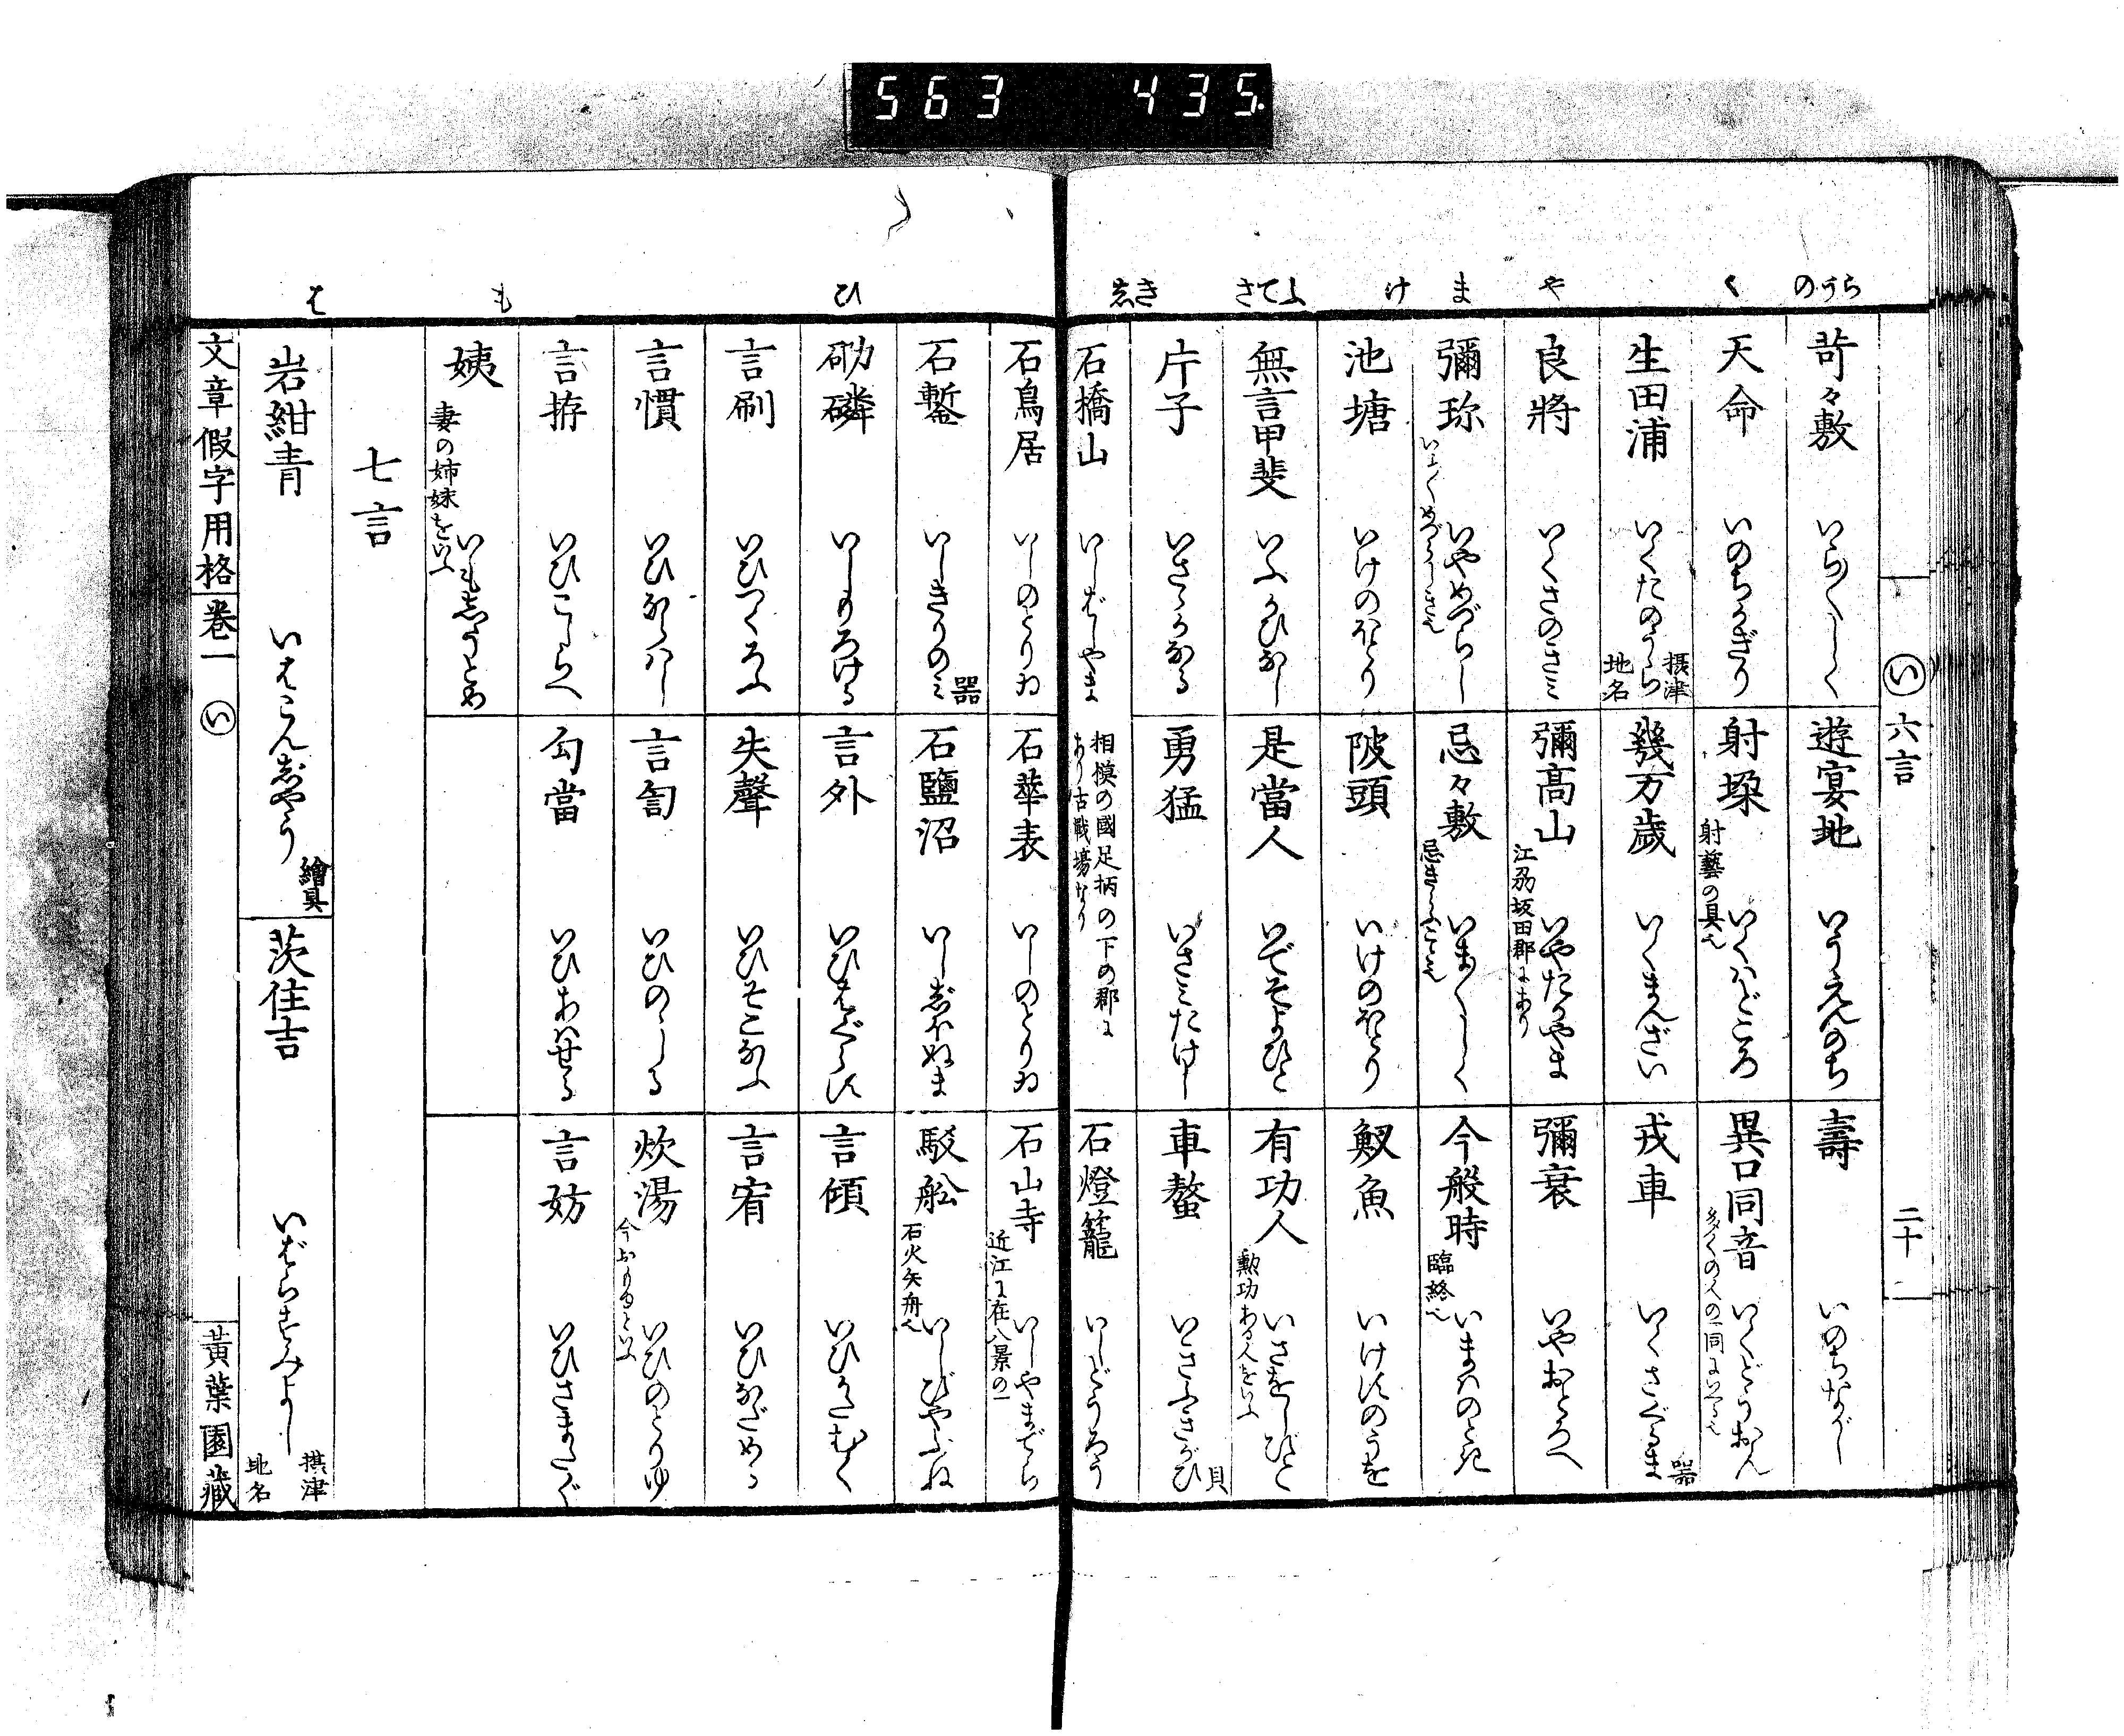 563 435.
のうら
く
や
ま
け
さてふ
ゑき
い 六言 二十
苛々敷 いら〱しく
遊宴地 いうえんのち
壽 いのちながし
天命 いのちかぎり
射垜 いくはどころ 射藝の具也
異口同音 いくどうおん
生田浦 いくたのうら 摂津地名
幾万歳 いくまんざい
戎車 いくさぐるま 器
良將 いくさのきみ
彌高山 いやたかやま 江刕坂田郡にあり
彌衰 いやおとろへ
彌珎 いやめづらし
忌々敷 いま〱しく
今般時 いまはのとき 臨終也
池塘 いけのほとり
陂頭 いけのほとり
魰魚 いけすのうを
無言甲斐 いふかひなし
是當人 いでそよひと
有功人 いさをしびと 勲功ある人をいふ
片子 いさゝかなる
勇猛 いさみたけし
車螯 いさふきがひ 貝
石橋山 いしばしやま 相模の國足柄の下の郡にあり古戰場なり
石燈籠 いしどうろう
ひ
も
は
石鳥居 いしのとりゐ
石華表 いしのとりゐ
石山寺 いしやまでら 近江に在八景の一
石鏨 いしきりのみ 器
石鹽沼 いしじほぬま
駁舩 いしびやぶね 石火矢舟也
砌磷 いしもろける
言外 いひはぐらす
言傾 いひかたむく
言刷 いひつくろふ
失聲 いひそこなふ
言宥 いひなだめる
言慣 いひならはし
言訇 いひのゝしる
炊湯 いひのとりゆ 今おもゆといふ
言拵 いひこしらへ
勾當 いひあはせる
言妨 いひさまたぐ
姨 いもしうとめ 妻の姉妹をいふ
七言
岩紺青 いはこんじやう 繪具
茨住吉 いばらすみよし 摂津地名
文章假字用格 巻一 い 黄葉園藏